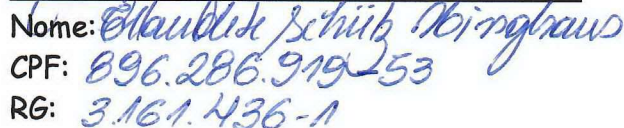 Nome: Claudete Schütz Ibinghaus
CPF: 896.286.919-53
RG: 3.161.436-1